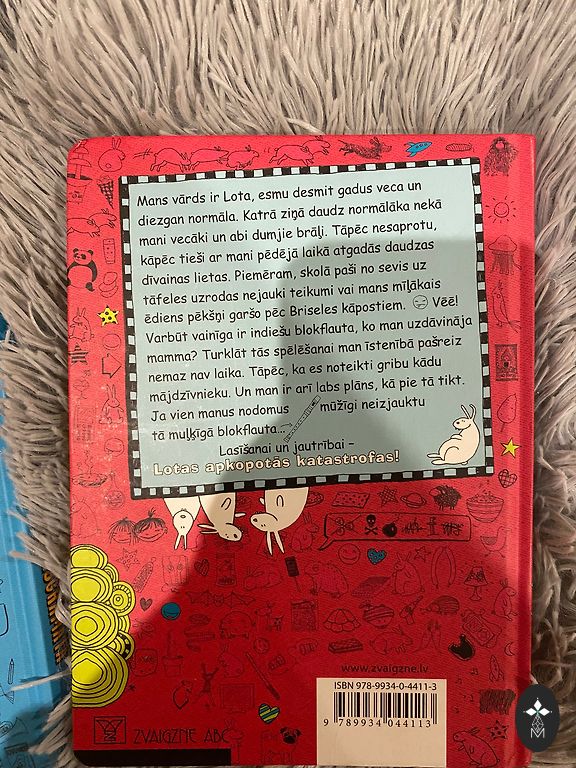 Mans vārds ir Lota, esmu desmit gadus veca un
diezgan normāla. Katrā ziņā daudz normālāka nekā
mani vecāki un abi dumjie brāļi. Tāpēc nesaprotu,
kāpēc tieši ar mani pēdējā laikā atgadās daudzas
dīvainas lietas. Piemēram, skolā paši no sevis uz
tāfeles uzrodas nejauki teikumi vai mans mīļākais
ēdiens pēkšņi garšo pēc Briseles kāpostiem. Vēē!
Varbūt vainīga ir indiešu blokflauta, ko man uzdāvināja
mamma? Turklāt tās spēlēšanai man īstenībā pašreiz
nemaz nav laika. Tāpēc, ka es noteikti gribu kādu
mājdzīvnieku. Un man ir arī labs plāns, kā pie tā tikt.
Ja vien manus nodomus mūžīgi neizjauktu
tā muļķīgā blokflauta...
Lasīšanai un jautrībai –
Lotas apkopotās katastrofas!
www.zvaigzne.lv
ISBN 978-9934-0-4411-3
9 789934 044113
ZVAIGZNE ABC